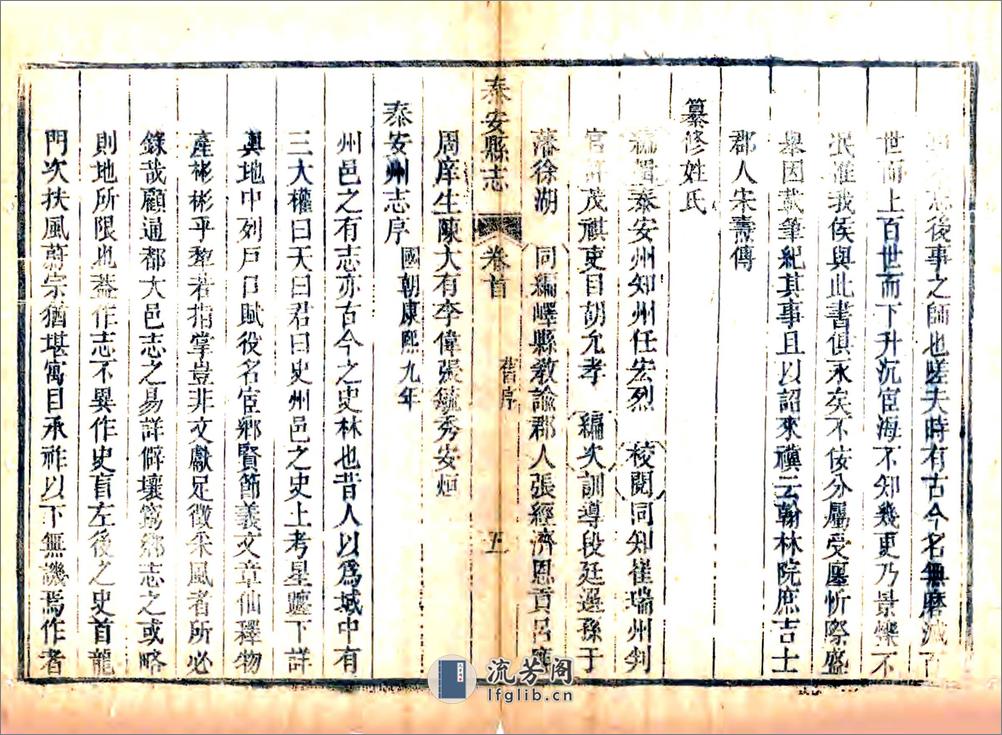 後事之師也嗟夫時有古今名無磨滅
世而上百世而下升沉宦海不知幾更乃景爍不
泯惟我侯與此書俱永矣不佞分屬受廛忻際盛
舉因載筆紀其事且以詔來禩云翰林院庶吉士
郡人宋燾傳
纂修姓氏
編輯泰安州知州任宏烈 校閱同知崔瑞州判
官許茂祺吏目胡允孝 編次訓導段廷選孫于
藩徐湖 同編嶧縣教諭郡人張經濟恩貢呂應
周庠生陳大有李偉張毓秀安烜
泰安縣志 卷首 舊序 五
泰安州志序 國朝康熙九年
州邑之有志亦古今之史林也昔人以爲域中有
三大權曰天曰君曰史州邑之史上考星躔下詳
輿地中列戶口賦役名宦鄉賢節義文章仙釋物
產彬彬乎犂若指掌豈非文獻足徵采風者所必
錄哉顧通都大邑志之易詳僻壤窮鄉志之或略
則地所限也蓋作志不異作史盲左後之史首龍
門次扶風蔚宗猶堪寓目承祚以下無譏焉作者
流芳阁
lfglib.cn